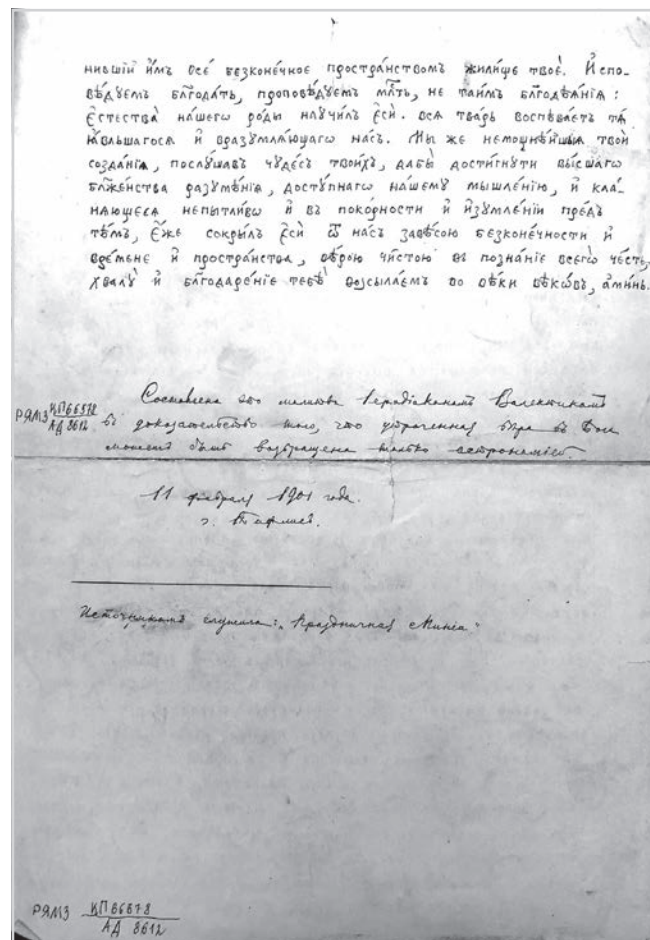 нившїй и҆́мъ все́ безконе́чное простра́нствомъ жили́ще твоѐ. И҆спо-
вѣ́дуемъ бл҃года́ть, проповѣ́дуемъ мл҃ть, не таи́мъ бл҃годѣѧ́нїѧ:
є҆стества̀ на́шегѡ ро́ды научи́лъ є҆сѝ. всѧ тва́рь воспѣва́етъ тѧ̀
ꙗ҆́вльшагосѧ и҆ вразумлѧ́ющаго на́съ. Мы же немощнѣ́йшыѧ твоѝ
созда́нїѧ, послу́шавъ чуде́съ твои́хъ, дабы̀ дости́гнути вы́сшагѡ
бл҃же́нства разумѣ́нїѧ, досту́пнагѡ на́шему мышле́нїю, и҆ кла́-
нѧющесѧ непытли́вѡ и҆ въ поко́рности и҆ и҆зумле́нїи пре́дъ
тѣ́мъ, є҆́же сокры́лъ є҆сѝ ѿ на́съ завѣ́сою безконе́чности и҆
вре́мене и҆ простра́нства, вѣ́рою чи́стою въ позна́нїе всегѡ̀ че́сть,
хвалꙋ̀ и҆ бл҃годаре́нїе тебѣ̀ возсыла́емъ во вѣ́ки вѣкѡ́въ, а҆ми́нь.
Составлена эта молитва Іеродіакономъ Валентиномъ
РЯМЗ КП 66578
АД 8612
въ доказательство того, что утраченная вѣра въ Бога
можетъ быть возвращена только астрономіей.
11 февраля 1901 года.
г. Тифлисъ.
Источникомъ служила: „Праздничная Минея“
РЯМЗ КП 66578
АД 8612